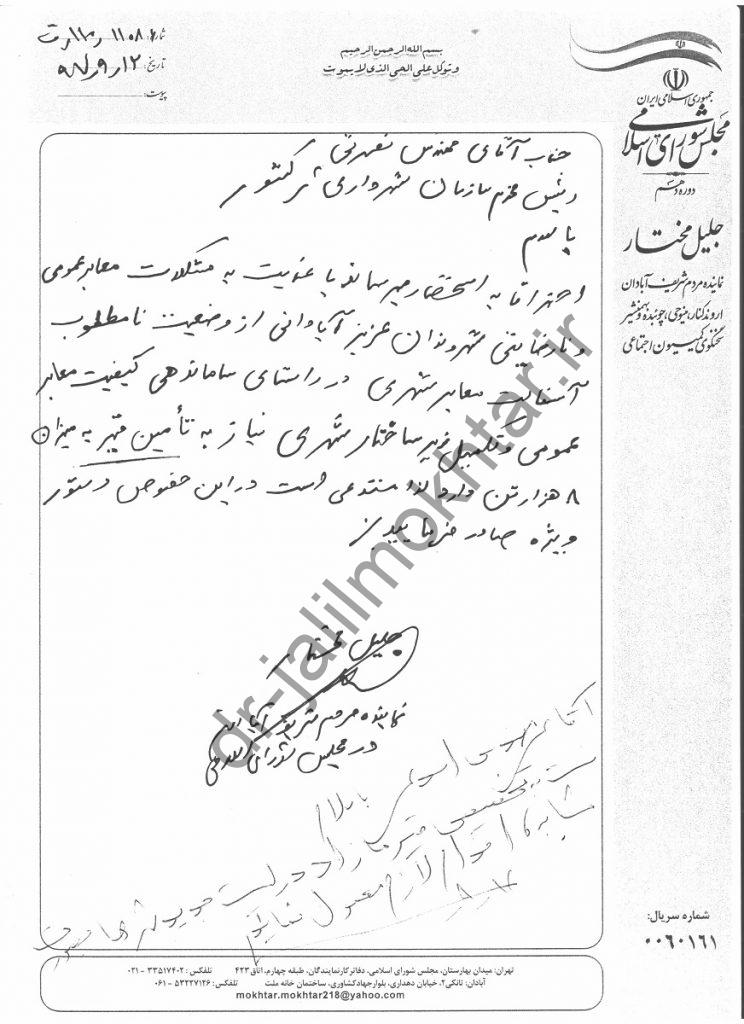 بسم الله الرحمن الرحیم
و توکل علی الحی الذی لا یموت
شماره: ۱۱۰۸
تاریخ:
پیوست:
جمهوری اسلامی ایران
مجلس شورای اسلامی
دوره دهم
جلیل مختار
نماینده مردم شریف آبادان
اروندکنار، منوحی، چوئبده و بهمنشیر
سخنگوی کمیسیون اجتماعی
جناب آقای مهندس
رئیس محترم سازمان شهرداری های کشور
با سلام
احتراما به استحضار میرساند با عنایت به مشکلات معابر عمومی
و نارضایتی شهروندان عزیز آبادانی از وضعیت نامطلوب
آسفالت معابر شهری در راستای ساماندهی کیفیت معابر
عمومی و تکمیل زیرساختار شهری نیاز به تأمین قیر به میزان
۸ هزار تن دارد لذا مستدعی است در این خصوص دستور
ویژه صادر فرمایید
جلیل مختار
نماینده مردم شریف آبادان
در مجلس شورای اسلامی
با سلام
اقدام لازم معمول
dr-jalilmokhtar.ir
شماره سریال:
۰۰۶۰۱۶۱
تهران: میدان بهارستان، مجلس شورای اسلامی، دفاتر کارنمایندگان، طبقه چهارم، اتاق ۴۲۳ تلفکس: ۳۳۵۱۷۴۰۲ - ۰۲۱
آبادان: تانکی۲، خیابان دهداری، بلوار جهادکشاورزی، ساختمان خانه ملت تلفکس: ۵۳۲۲۷۱۲۶ - ۰۶۱
mokhtar.mokhtar218@yahoo.com